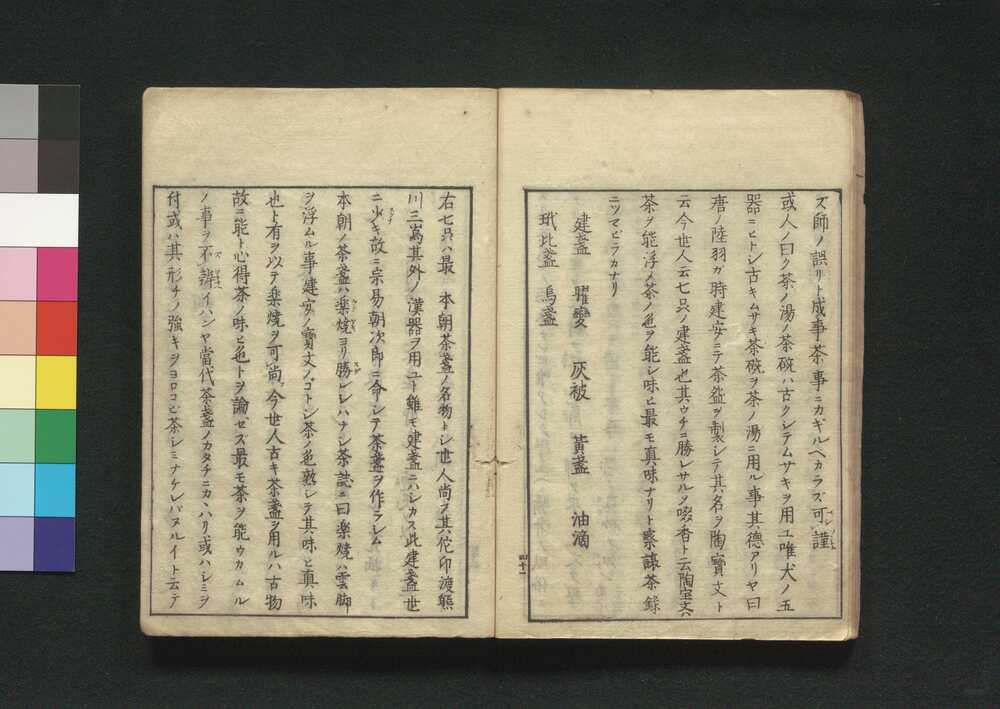 ズ師ノ誤リト成事茶事ニカギルヘカラズ可謹
或人ノ曰ク茶ノ湯ノ茶碗ハ古クシテムサキヲ用ユ唯犬ノ五
器ニヒトシ古キムサキ茶碗ヲ茶ノ湯ニ用ル事其德アリヤ曰
唐ノ陸羽ガ時建安ニテ茶盆ヲ製シテ其名ヲ陶寳文ト
云今世人云七只ノ建盞也其ウチニ勝レサルノ啜香ト云陶宝文ハ
茶ヲ能浮メ茶ノ色ヲ能シ味ヒ最モ真味ナリト蔡譲茶録
ニツマビラカナリ
建盞 曜變 灰被 黃盞 油滴
玳比盞 烏盞
四十一
右七只ハ最 本朝茶盞ノ名物トシ世人尚ヲ其佗印渡熊
川三嶌其外ノ漢器ヲ用ユト雖モ建盞ニハシカス此建盞世
ニ少キ故ニ宗易朝次郎ニ命シテ茶盞ヲ作ラレム
本朝ノ茶盞ハ楽燒ヨリ勝レシハナシ茶誌ニ曰楽燒ハ雲脚
ヲ浮ムル事建安ノ寳文ノゴトシ茶ノ色熟シテ其味ヒ真味
也ト有ヲ以テ楽燒ヲ可尚今世人古キ茶盞ヲ用ルハ古物
故ニ能ト心得茶ノ味ヒ色トヲ論セズ最モ茶ヲ能ウカムル
ノ事ヲ不辨イハンヤ當代茶盞ノカタチニカヽハリ或ハシミヲ
付或ハ其形チノ強キヲヨロコビ茶シミナケレバヌルイト云テ